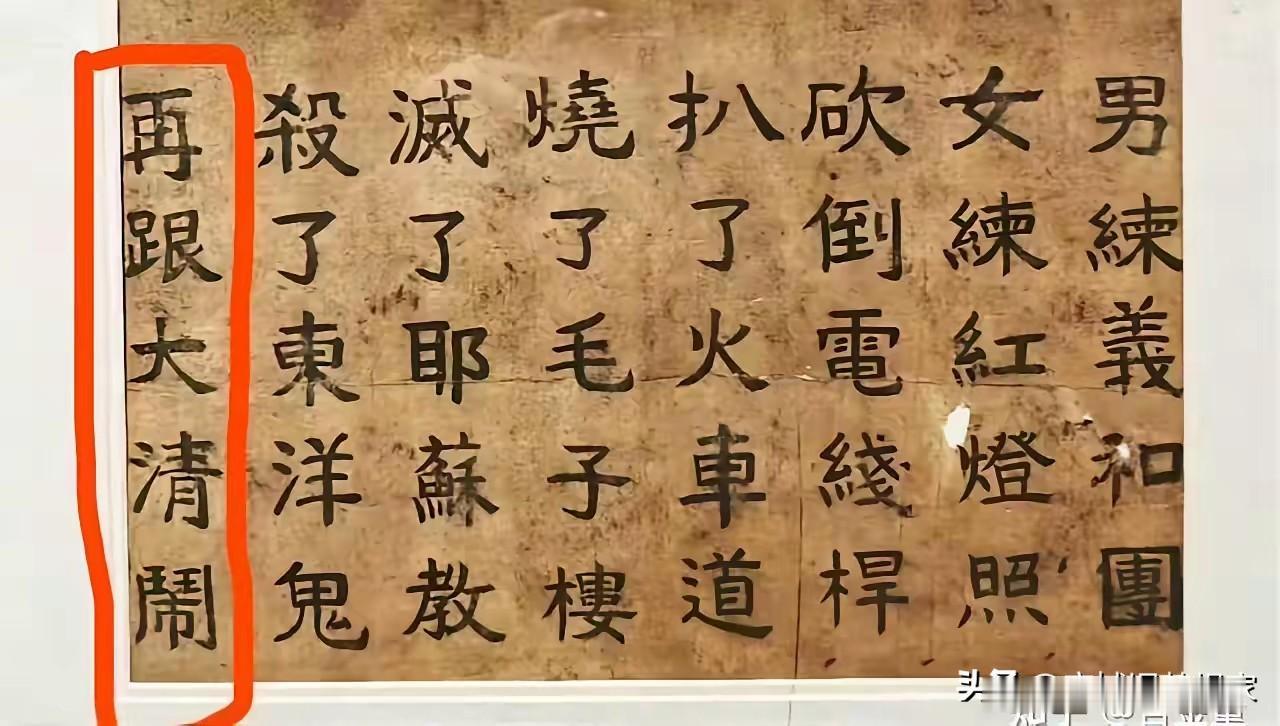 男練義和團
女練紅燈照
砍倒電綫桿
扒了火車道
燒了毛子樓
滅了耶蘇教
殺了東洋鬼
再跟大清鬧
头条